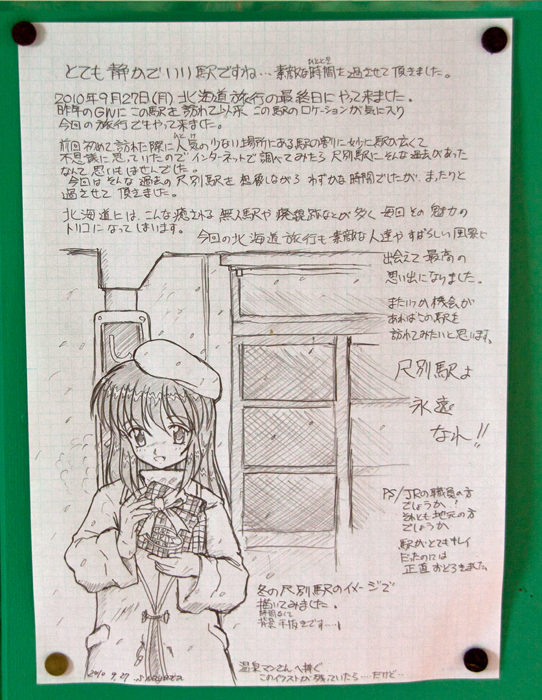 とても静かでいい駅ですね…素敵な時間を過させて頂きました。
ひととき
2010年9月27日(月) 北海道旅行の最終日にやって来ました。
昨年のGWにこの駅を訪れて以来、この駅のロケーションが気に入り
今回の旅行でもやって来ました。
前回初めて訪れた際に人気の少ない場所にある駅の割に妙に駅が広くて
ひとけ
不思議に思っていたのでインターネットで調べてみたら尺別駅にそんな過去があった
なんて思いもしませんでした。
今回はそんな過去の尺別駅を想像しながら わずかな時間でしたが、まったりと
過させて頂きました。
北海道には、こんな癒される無人駅や廃線跡などが多く 毎回その魅力の
トリコになってしまいます。
今回の北海道旅行も素敵な人達やすばらしい風景と
出会えて最高の
思い出になりました。
またいつか機会が
あればこの駅を
訪れてみたいと思います。
尺別駅よ
永遠
なれ!!
PS/JRの職員の方
でしょうか?
それとも地元の方
でしょうか
駅がとてもキレイ
だったのには
正直おどろきました。
冬の尺別駅のイメージで
描いてみました。
時間なくて
背景 手抜きです…!
2010 9.27
温泉マンさんへ捧ぐ
このイラストが残っていたら……だけど…